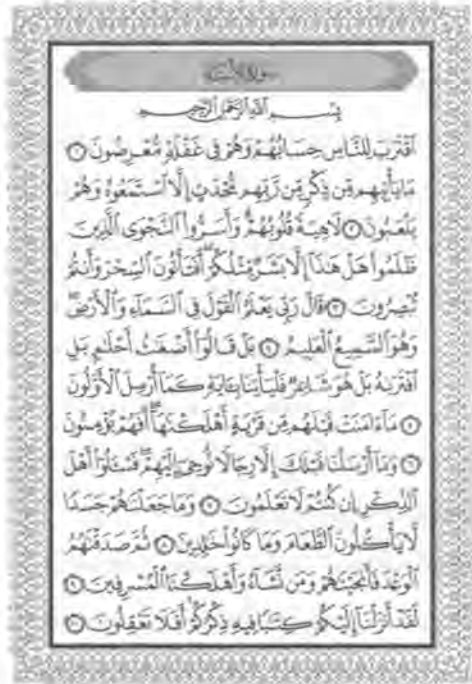 سورة الأنبياء
بِسْمِ اللَّهِ الرَّحْمَٰنِ الرَّحِيمِ
ٱقْتَرَبَ لِلنَّاسِ حِسَابُهُمْ وَهُمْ فِى غَفْلَةٍ مُّعْرِضُونَ ١
مَا يَأْتِيهِم مِّن ذِكْرٍ مِّن رَّبِّهِم مُّحْدَثٍ إِلَّا ٱسْتَمَعُوهُ وَهُمْ
يَلْعَبُونَ ٢ لَاهِيَةً قُلُوبُهُمْ وَأَسَرُّوا۟ ٱلنَّجْوَى ٱلَّذِينَ
ظَلَمُوا۟ هَلْ هَٰذَآ إِلَّا بَشَرٌ مِّثْلُكُمْ أَفَتَأْتُونَ ٱلسِّحْرَ وَأَنتُمْ
تُبْصِرُونَ ٣ قَالَ رَبِّى يَعْلَمُ ٱلْقَوْلَ فِى ٱلسَّمَآءِ وَٱلْأَرْضِ
وَهُوَ ٱلسَّمِيعُ ٱلْعَلِيمُ ٤ بَلْ قَالُوٓا۟ أَضْغَٰثُ أَحْلَٰمٍۭ بَلِ
ٱفْتَرَىٰهُ بَلْ هُوَ شَاعِرٌ فَلْيَأْتِنَا بِـَٔايَةٍ كَمَآ أُرْسِلَ ٱلْأَوَّلُونَ
٥ مَآ ءَامَنَتْ قَبْلَهُم مِّن قَرْيَةٍ أَهْلَكْنَٰهَآ أَفَهُمْ يُؤْمِنُونَ
٦ وَمَآ أَرْسَلْنَا قَبْلَكَ إِلَّا رِجَالًا نُّوحِىٓ إِلَيْهِمْ فَسْـَٔلُوٓا۟ أَهْلَ
ٱلذِّكْرِ إِن كُنتُمْ لَا تَعْلَمُونَ ٧ وَمَا جَعَلْنَٰهُمْ جَسَدًا
لَّا يَأْكُلُونَ ٱلطَّعَامَ وَمَا كَانُوا۟ خَٰلِدِينَ ٨ ثُمَّ صَدَقْنَٰهُمُ
ٱلْوَعْدَ فَأَنجَيْنَٰهُمْ وَمَن نَّشَآءُ وَأَهْلَكْنَا ٱلْمُسْرِفِينَ ٩
لَقَدْ أَنزَلْنَآ إِلَيْكُمْ كِتَٰبًا فِيهِ ذِكْرُكُمْ أَفَلَا تَعْقِلُونَ ١٠